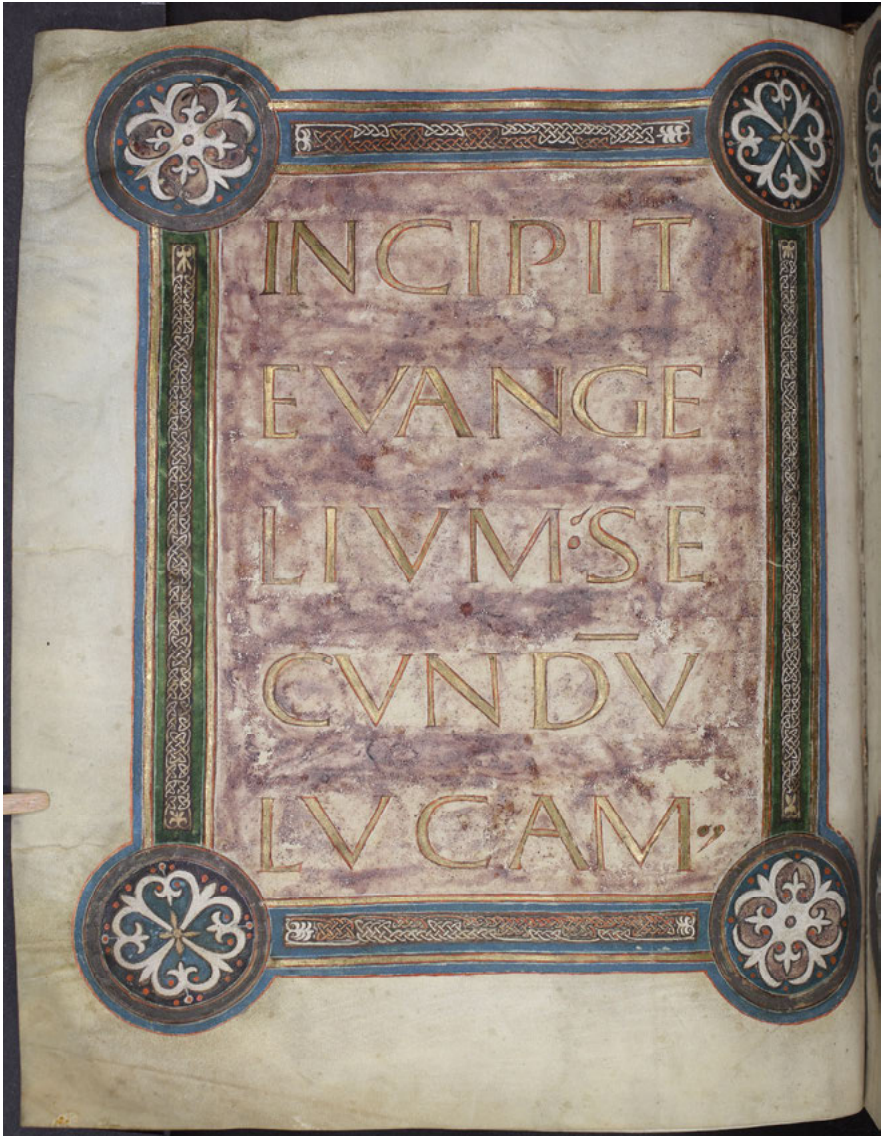 INCIPIT
EVANGE
LIVM:SE
CVNDV̅
LVCAM